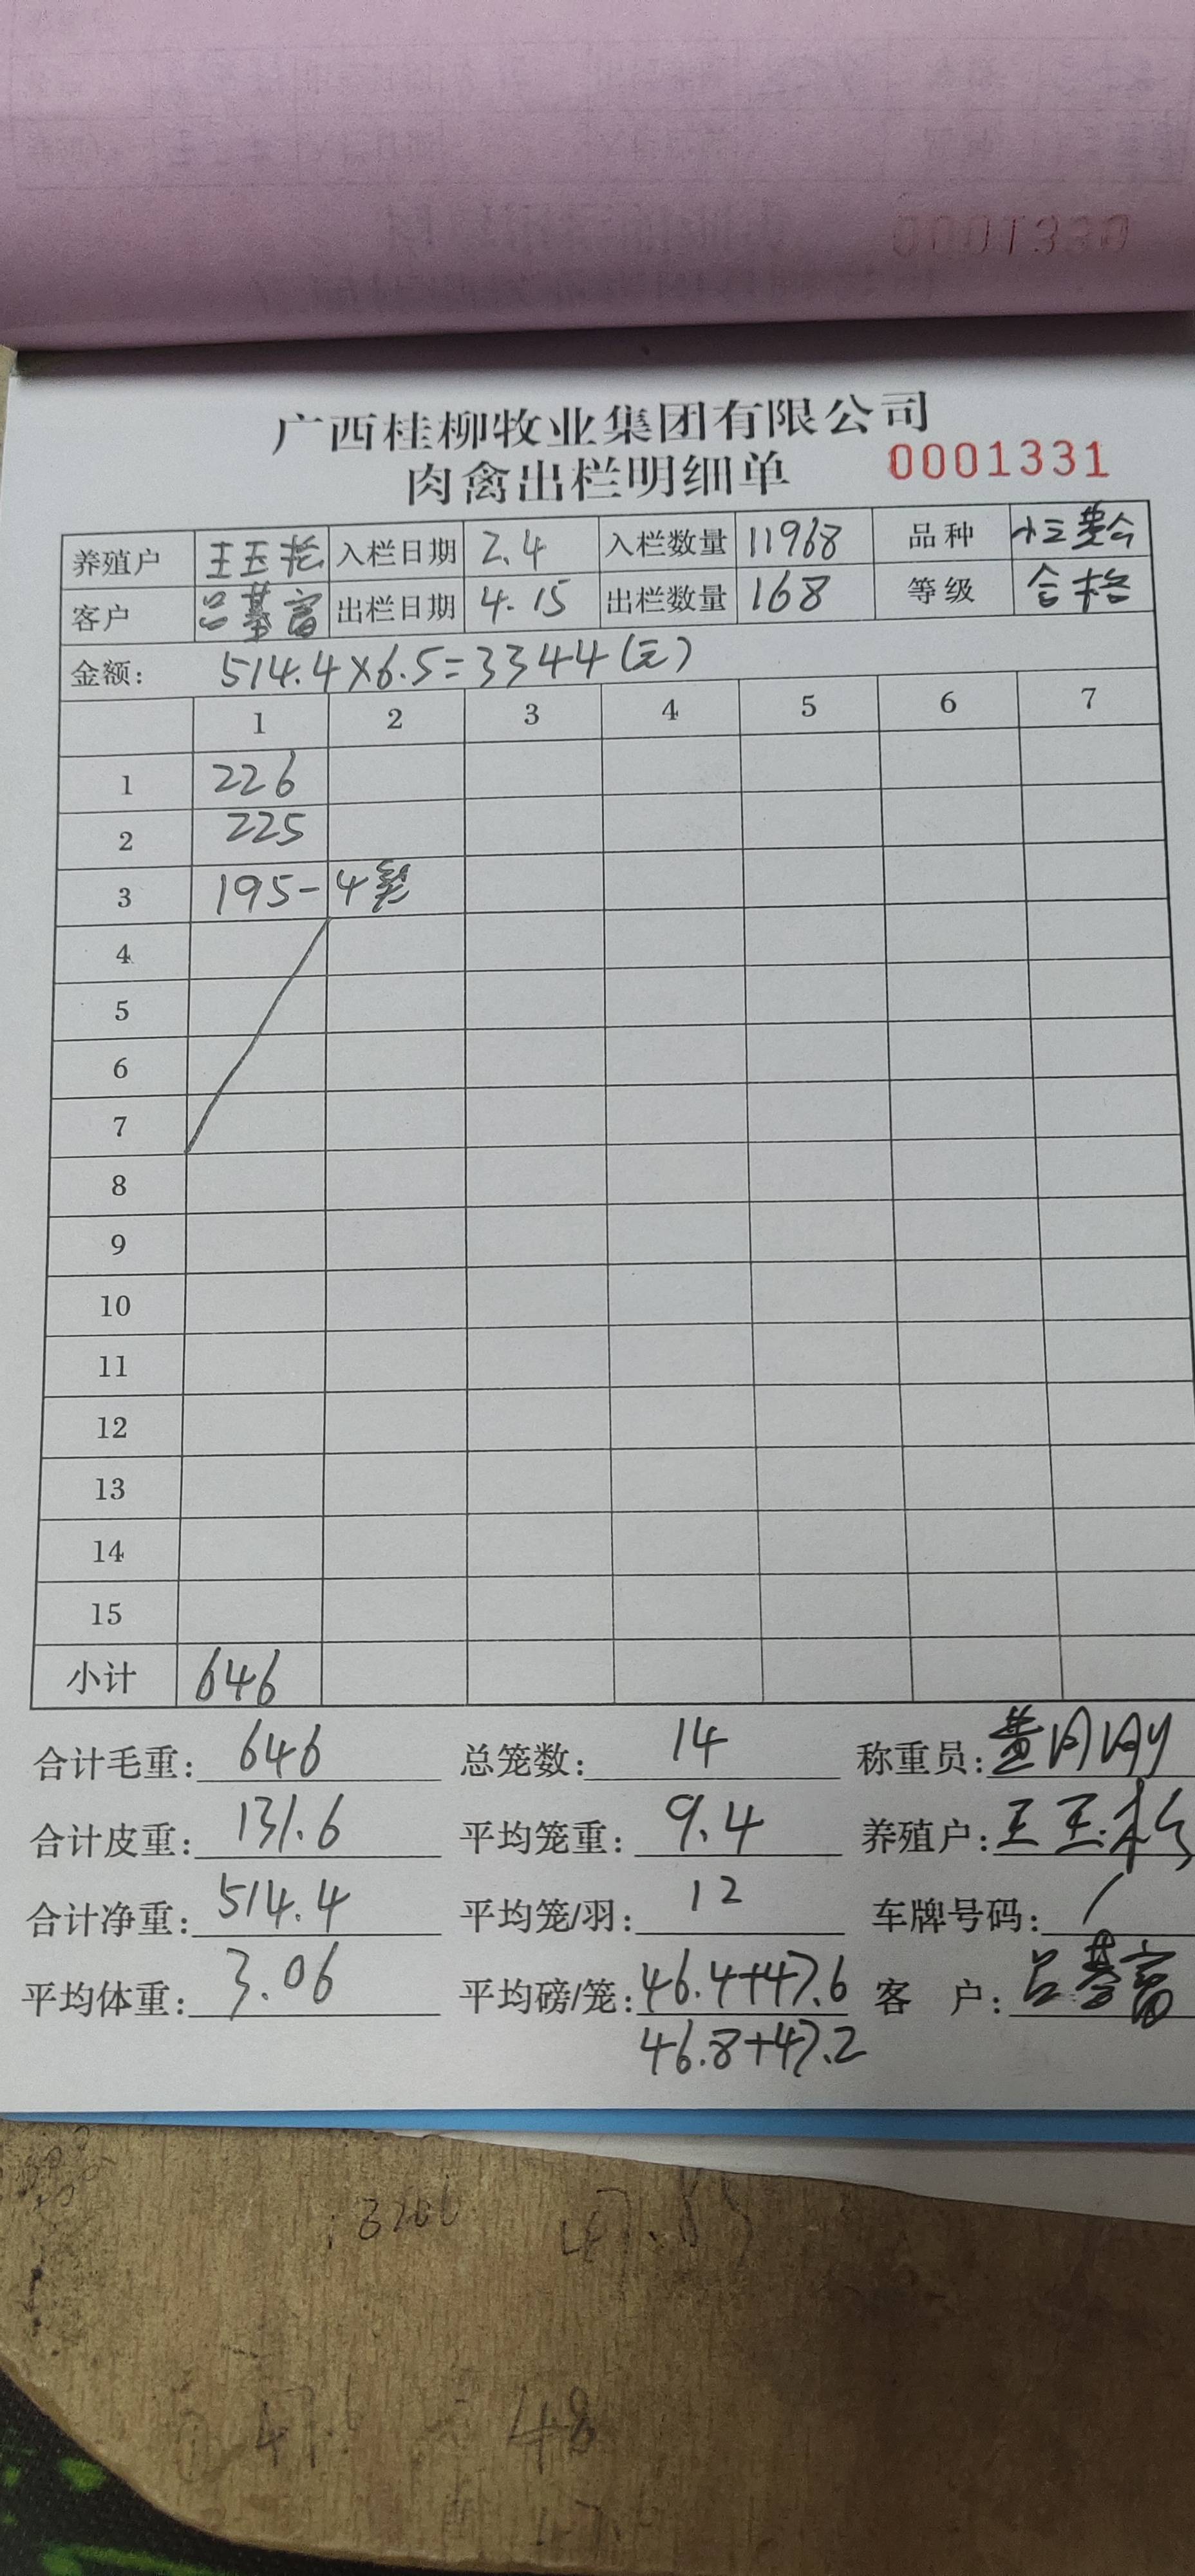 0001330
广西桂柳牧业集团有限公司
肉禽出栏明细单 0001331
养殖户 王玉松 入栏日期 2.4 入栏数量 11968 品种
客户 吕基富 出栏日期 4.15 出栏数量 168 等级 合格
金额: 514.4×6.5=3344(元)
1 2 3 4 5 6 7
1 226
2 225
3 195-4笼
4
5
6
7
8
9
10
11
12
13
14
15
小计 646
合计毛重: 646 总笼数: 14 称重员: 黄月刚
合计皮重: 131.6 平均笼重: 9.4 养殖户: 王玉松
合计净重: 514.4 平均笼/羽: 12 车牌号码: /
平均体重: 3.06 平均磅/笼: 46.4+47.6 客户: 吕基富
46.8+47.2
48